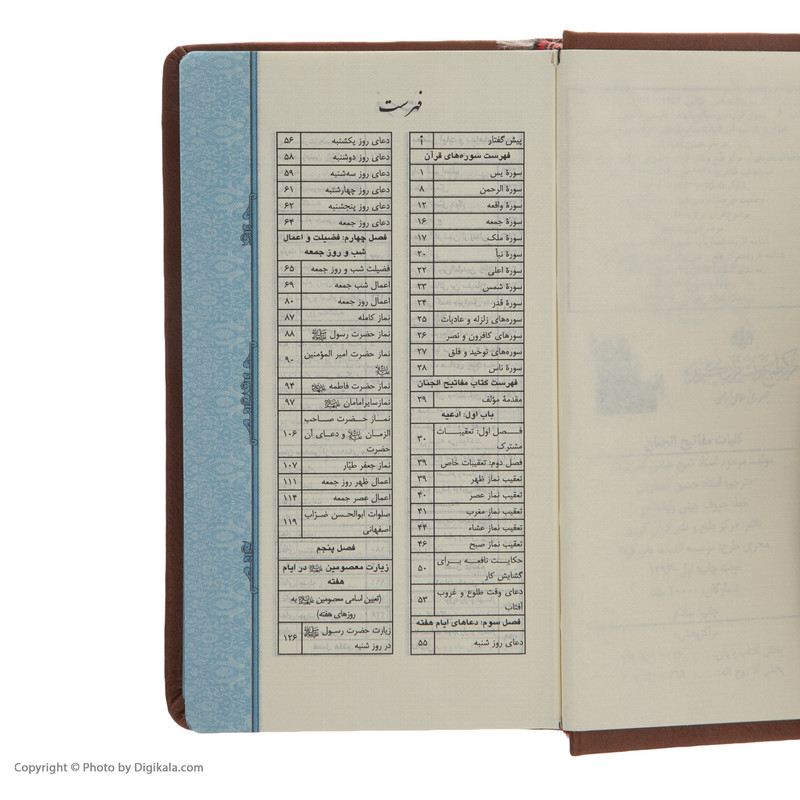 فهرست
پیش گفتار أ
فهرست سوره‌های قرآن
سورهٔ یس ۱
سورهٔ الرحمن ۸
سورهٔ واقعه ۱۲
سورهٔ جمعه ۱۶
سورهٔ ملک ۱۷
سورهٔ نبأ ۲۰
سورهٔ اعلی ۲۲
سورهٔ شمس ۲۳
سورهٔ قدر ۲۴
سوره‌های زلزله و عادیات ۲۵
سوره‌های کافرون و نصر ۲۶
سوره‌های توحید و فلق ۲۷
سورهٔ ناس ۲۸
فهرست کتاب مفاتیح الجنان
مقدمهٔ مؤلف ۲۹
باب اول: ادعیه
فصل اول: تعقیبات
مشترک ۳۰
فصل دوم: تعقیبات خاص ۳۹
تعقیب نماز ظهر ۳۹
تعقیب نماز عصر ۴۰
تعقیب نماز مغرب ۴۱
تعقیب نماز عشاء ۴۴
تعقیب نماز صبح ۴۶
حکایت نافعه برای
گشایش کار ۵۰
دعای وقت طلوع و غروب
آفتاب ۵۳
فصل سوم: دعاهای ایام هفته
دعای روز شنبه ۵۵
دعای روز یکشنبه ۵۶
دعای روز دوشنبه ۵۸
دعای روز سه‌شنبه ۵۹
دعای روز چهارشنبه ۶۱
دعای روز پنجشنبه ۶۲
دعای روز جمعه ۶۴
فصل چهارم: فضیلت و اعمال
شب و روز جمعه
فضیلت شب و روز جمعه ۶۵
اعمال شب جمعه ۶۹
اعمال روز جمعه ۸۰
نماز کامله ۸۷
نماز حضرت رسول ﷺ ۸۸
نماز حضرت امیر المؤمنین ۹۰
نماز حضرت فاطمه ۹۴
نماز سایر امامان ۹۷
نماز حضرت صاحب
الزمان و دعای آن
حضرت ۱۰۶
نماز جعفر طیّار ۱۰۷
اعمال ظهر روز جمعه ۱۱۱
اعمال عصر جمعه ۱۱۴
صلوات ابوالحسن ضرّاب
اصفهانی ۱۱۹
فصل پنجم
زیارت معصومین در ایام
هفته
(تعیین اسامی معصومین به
روزهای هفته)
زیارت حضرت رسول ﷺ
در روز شنبه ۱۲۶
Copyright © Photo by Digikala.com